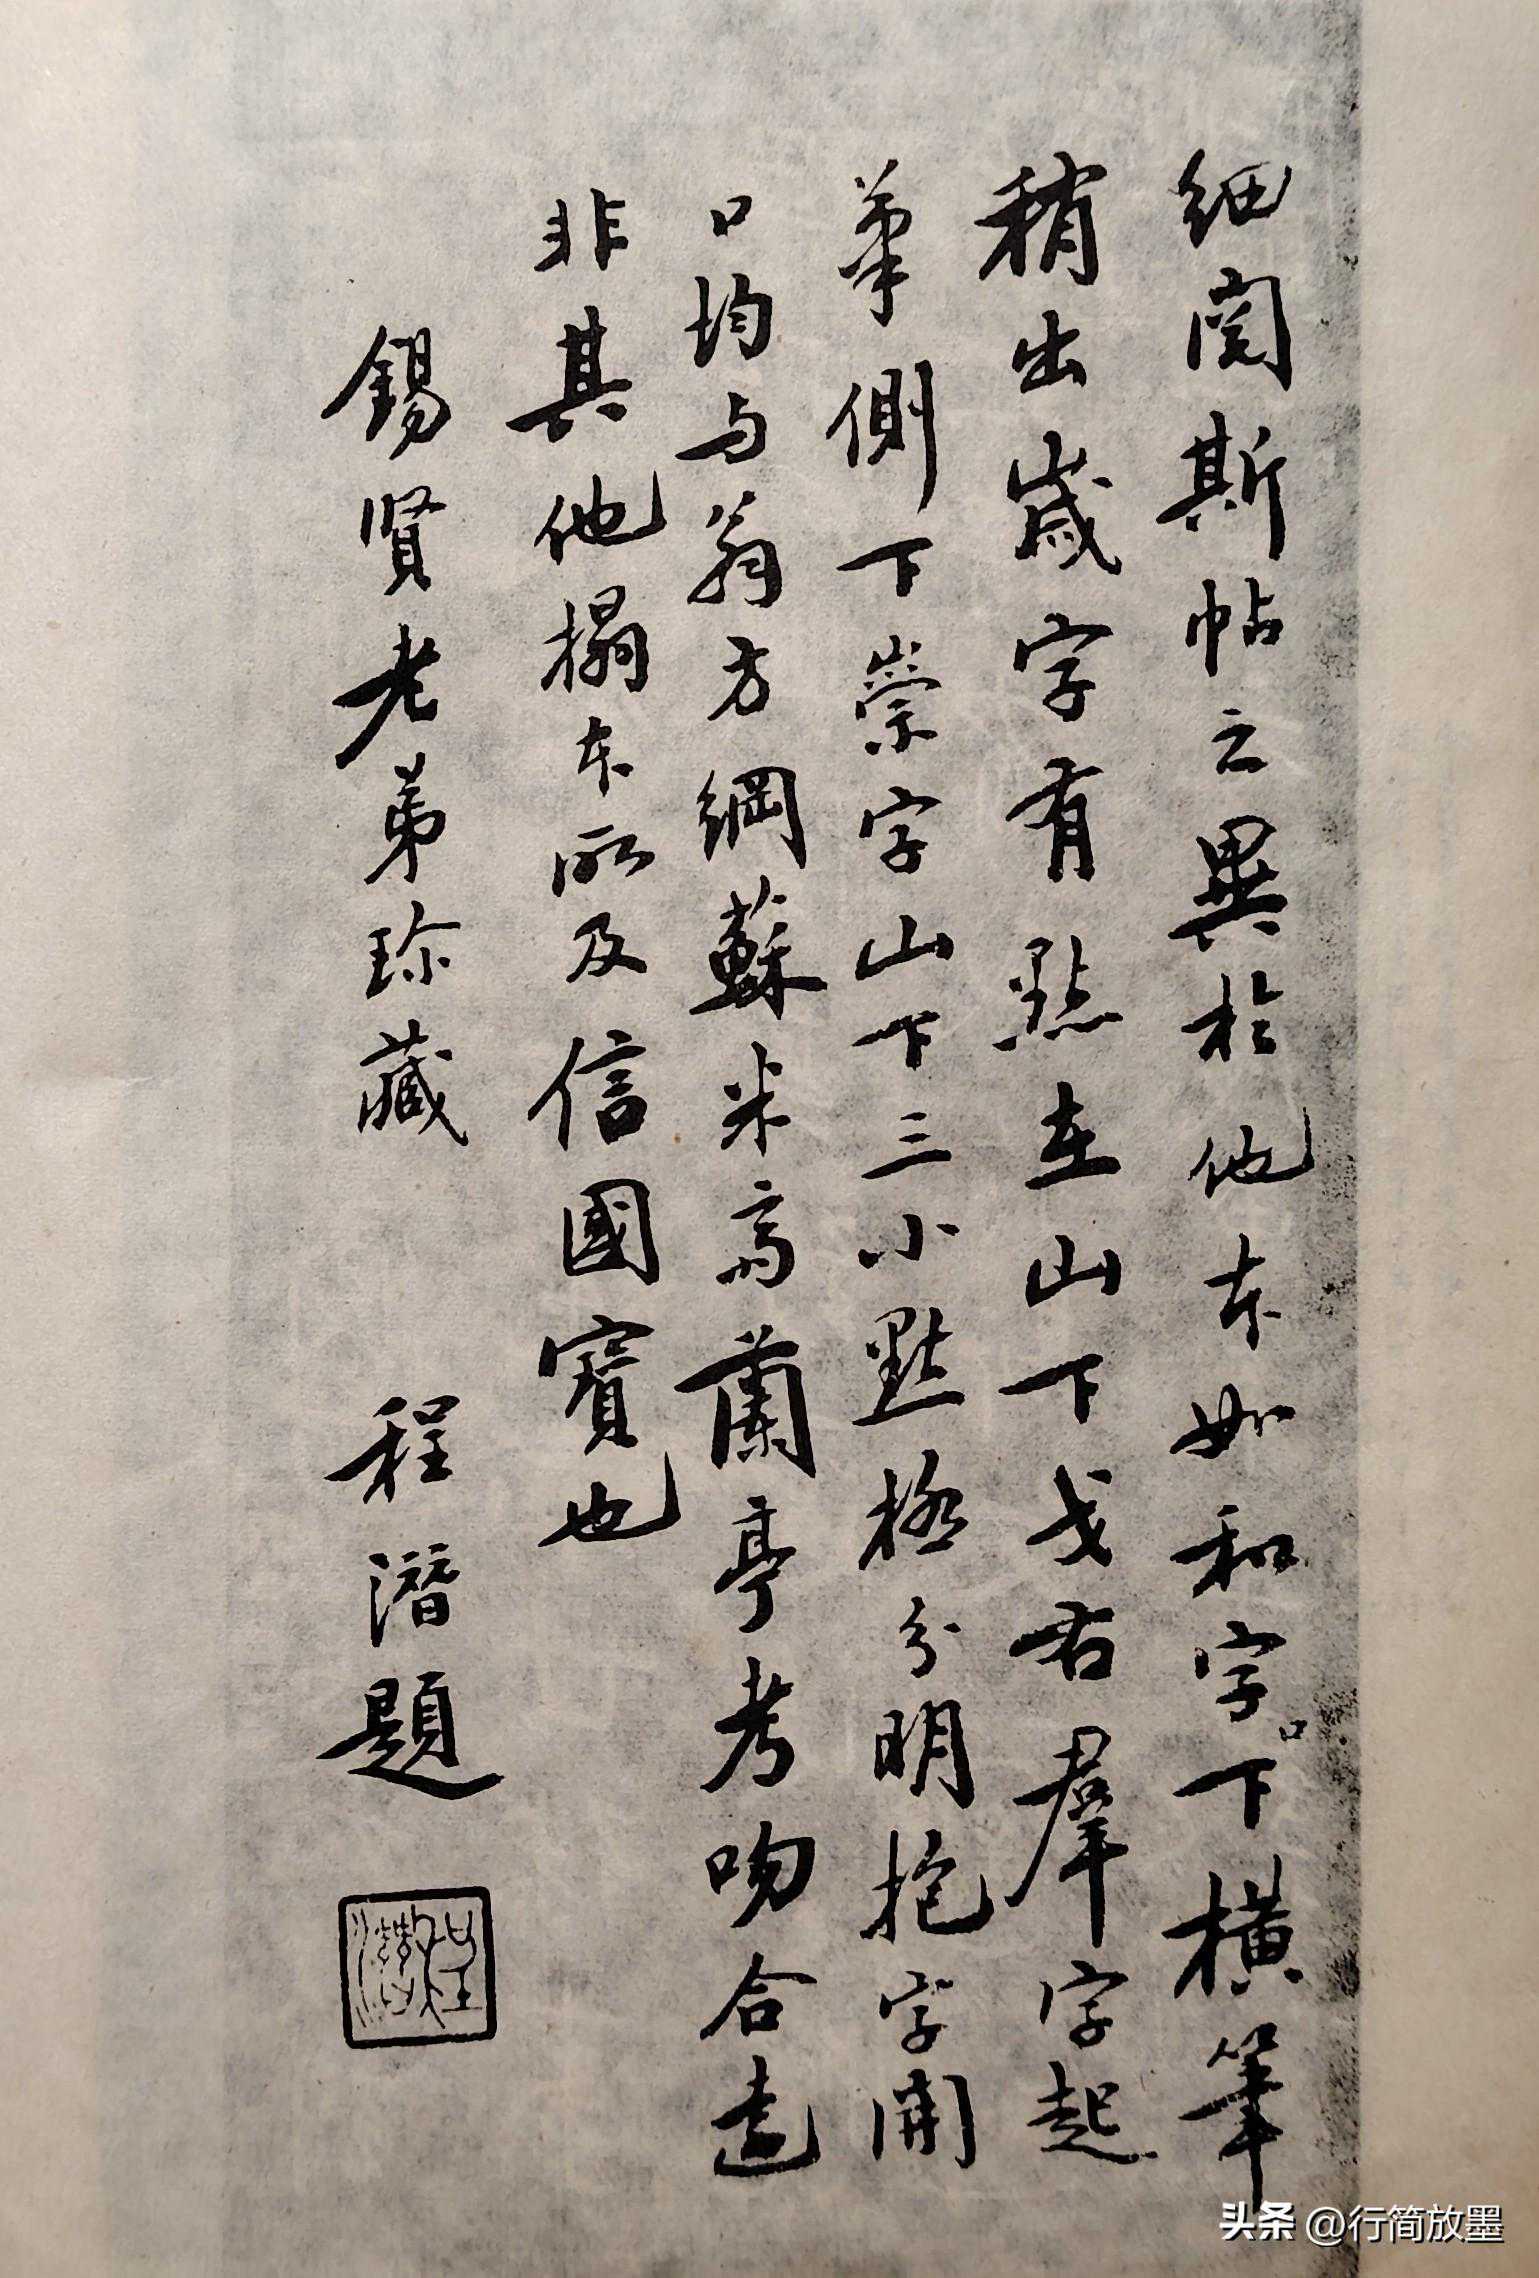 细閱斯帖之異於他本如和字口下橫筆
稍出歲字有點在山下戈右羣字起
筆側下崇字山下三小點極分明抱字開
口均与翁方綱蘇米斋蘭亭考吻合遠
非其他搨本所及信國寶也
錫賢老弟珍藏
程潛題
程潛
头条 @行简放墨